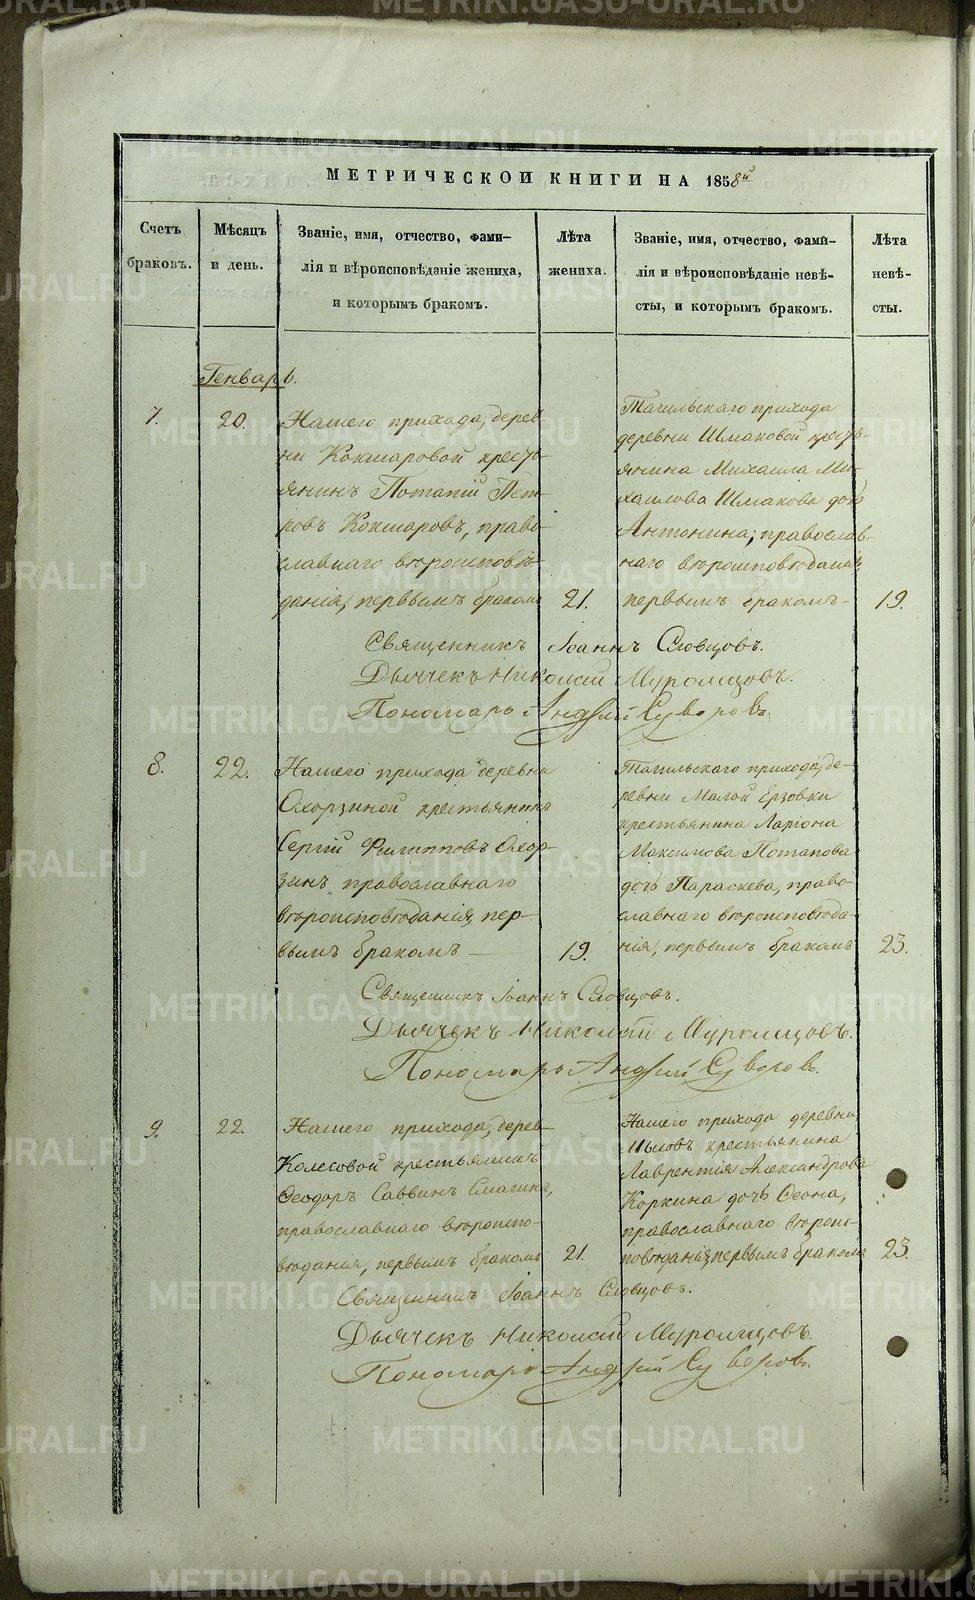 МЕТРИЧЕСКОЙ КНИГИ НА 1858й
Счетъ
браковъ.
Мѣсяцъ
и день.
Званіе, имя, отчество, фами-
лія и вѣроисповѣданіе жениха,
и которымъ бракомъ.
Лѣта
жениха.
Званіе, имя, отчество, фамй-
лія и вѣроисповѣданіе невѣ-
сты, и которымъ бракомъ.
Лѣта
невѣ-
сты.
Генварь.
7.
20.
Нашего прихода, дерев
ни Кокшаровой кресть-
янинъ Потапій Пет-
ровъ Кокшаровъ, право-
славнаго вѣроисповѣ-
данія, первымъ бракомъ
21.
Тагильскаго прихода
деревни Шмаковой кресть-
янина Михаила Ми-
хаилова Шмакова дочь
Антонина, православ-
наго вѣроисповѣданія,
первымъ бракомъ-
19.
Священникъ Іоаннъ Словцовъ.
Дьячекъ Николай Муромцовъ.
Пономарь Андрей Суворовъ.
8.
22.
Нашего прихода деревни
Охорзиной крестьянинъ
Сергій Филипповъ Охор-
зинъ православнаго
вѣроисповѣданія, пер-
вымъ бракомъ
19.
Тагильскаго прихода, де-
ревни Малой Ерзовки
крестьянина Ларіона
Максимова Потапова
дочь Параскева, право-
славнаго вѣроисповѣда-
нія, первымъ бракомъ
23.
Священникъ Іоаннъ Словцовъ.
Дьячекъ Николай Муромцовъ.
Пономарь Андрей Суворовъ.
9.
22.
Нашего прихода, дерев-
Колесовой крестьянинъ
Ѳеодоръ Саввинъ Смагинъ,
православнаго вѣроиспо-
вѣданія, первымъ бракомъ
21.
Нашего прихода деревни
крестьянина
Лаврентія Александрова
Коркина дочь Ѳеона,
православнаго вѣроис-
повѣданія, первымъ бракомъ
23.
Священникъ Іоаннъ Словцовъ.
Дьячекъ Николай Муромцовъ.
Пономарь Андрей Суворовъ.
METRIKI.GASO-URAL.RU